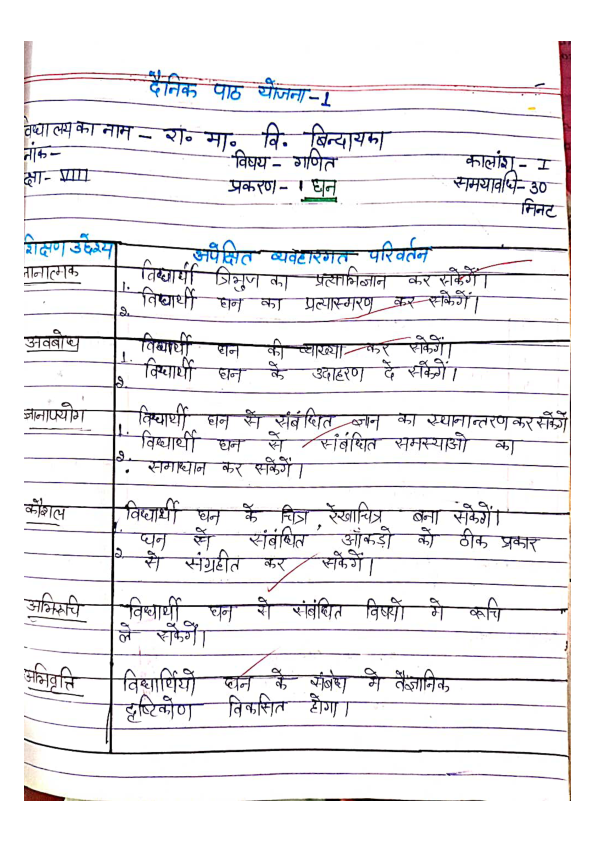 दैनिक पाठ योजना-1
विद्यालय का नाम - रा. मा. वि. बिन्दायका
नांक-
विषय - गणित
कालांश - I
क्षा- VIII
प्रकरण - घन
समयावधि- 30
मिनट
शिक्षण उद्देश्य
अपेक्षित व्यवहारगत परिवर्तन
ज्ञानात्मक
1. विद्यार्थी त्रिभुज का प्रत्याभिज्ञान कर सकेगें।
2. विद्यार्थी घन का प्रत्यास्मरण कर सकेगें।
अवबोध
1. विद्यार्थी घन की व्याख्या कर सकेगें।
2. विद्यार्थी घन के उदाहरण दे सकेगें।
ज्ञानोपयोग
1. विद्यार्थी घन से संबंधित ज्ञान का स्थानान्तरण कर सकेगें
2. विद्यार्थी घन से संबंधित समस्याओ का
समाधान कर सकेगें।
कौशल
1. विद्यार्थी घन के चित्र, रेखाचित्र बना सकेगें।
2. घन से संबंधित आँकडो को ठीक प्रकार
से संग्रहीत कर सकेगें।
अभिरूचि
विद्यार्थी घन से संबंधित विषयो मे रूचि
ले सकेगें।
अभिवृत्ति
विद्यार्थियो घन के संबंध मे वैज्ञानिक
दृष्टिकोण विकसित होगा।